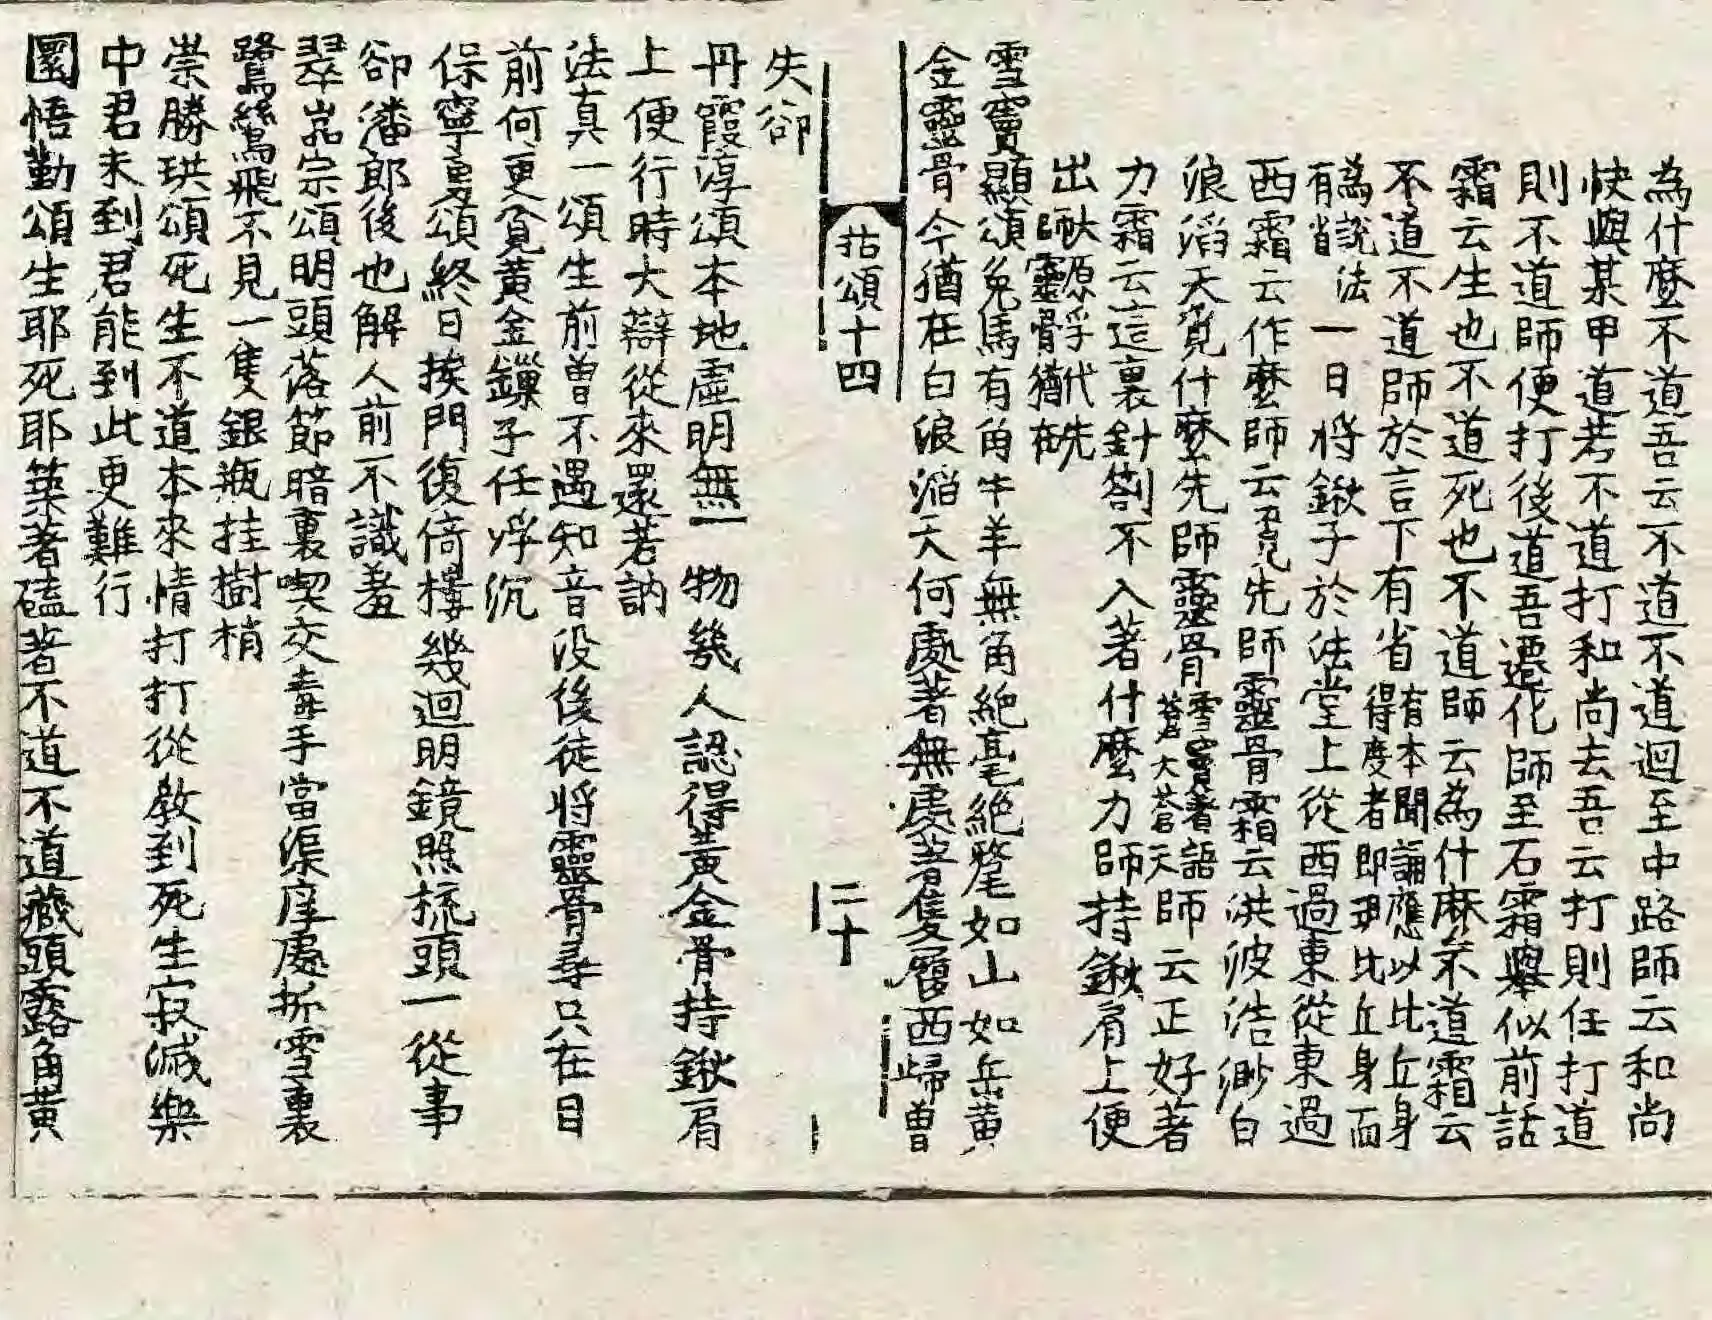 為什麼不道吾云不道不道迴至中路師云和尚
快與某甲道若不道打和尚去吾云打則任打道
則不道師便打後道吾遷化師至石霜舉似前話
霜云生也不道死也不道師云為什麻不道霜云
不道不道師於言下有省有本聞誦應以比丘身得度者即現比丘身而
為說法有省一日將鍬子於法堂上從西過東從東過
西霜云作麼師云覓先師靈骨霜云洪波浩渺白
浪滔天覓什麼先師靈骨雪竇著語蒼天蒼天師云正好著
力霜云這裏針劄不入著什麼力師持鍬肩上便
出太原孚代先師靈骨猶在
雪竇顯頌兔馬有角牛羊無角絕毫絕氂如山如岳黃
金靈骨今猶在白浪滔天何處著無處著隻履西歸曾
拈頌十四 二十
失卻
丹霞淳頌本地虛明無一物幾人認得黃金骨持鍬肩
上便行時大辯從來還若訥
法真一頌生前曾不遇知音沒後徒將靈骨尋只在目
前何更覓黃金鏁子任浮沉
保寧勇頌終日挨門復倚樓幾迴明鏡照梳頭一從事
卻潘郎後也解人前不識羞
翠嵓宗頌明頭落節暗裏喫交毒手當渠㡯處折雪裏
鷺鷥飛不見一隻銀瓶挂樹梢
崇勝珙頌死生不道本來情打打從教到死生寂滅樂
中君未到君能到此更難行
圜悟勤頌生耶死耶築著磕著不道不道藏頭露角黃